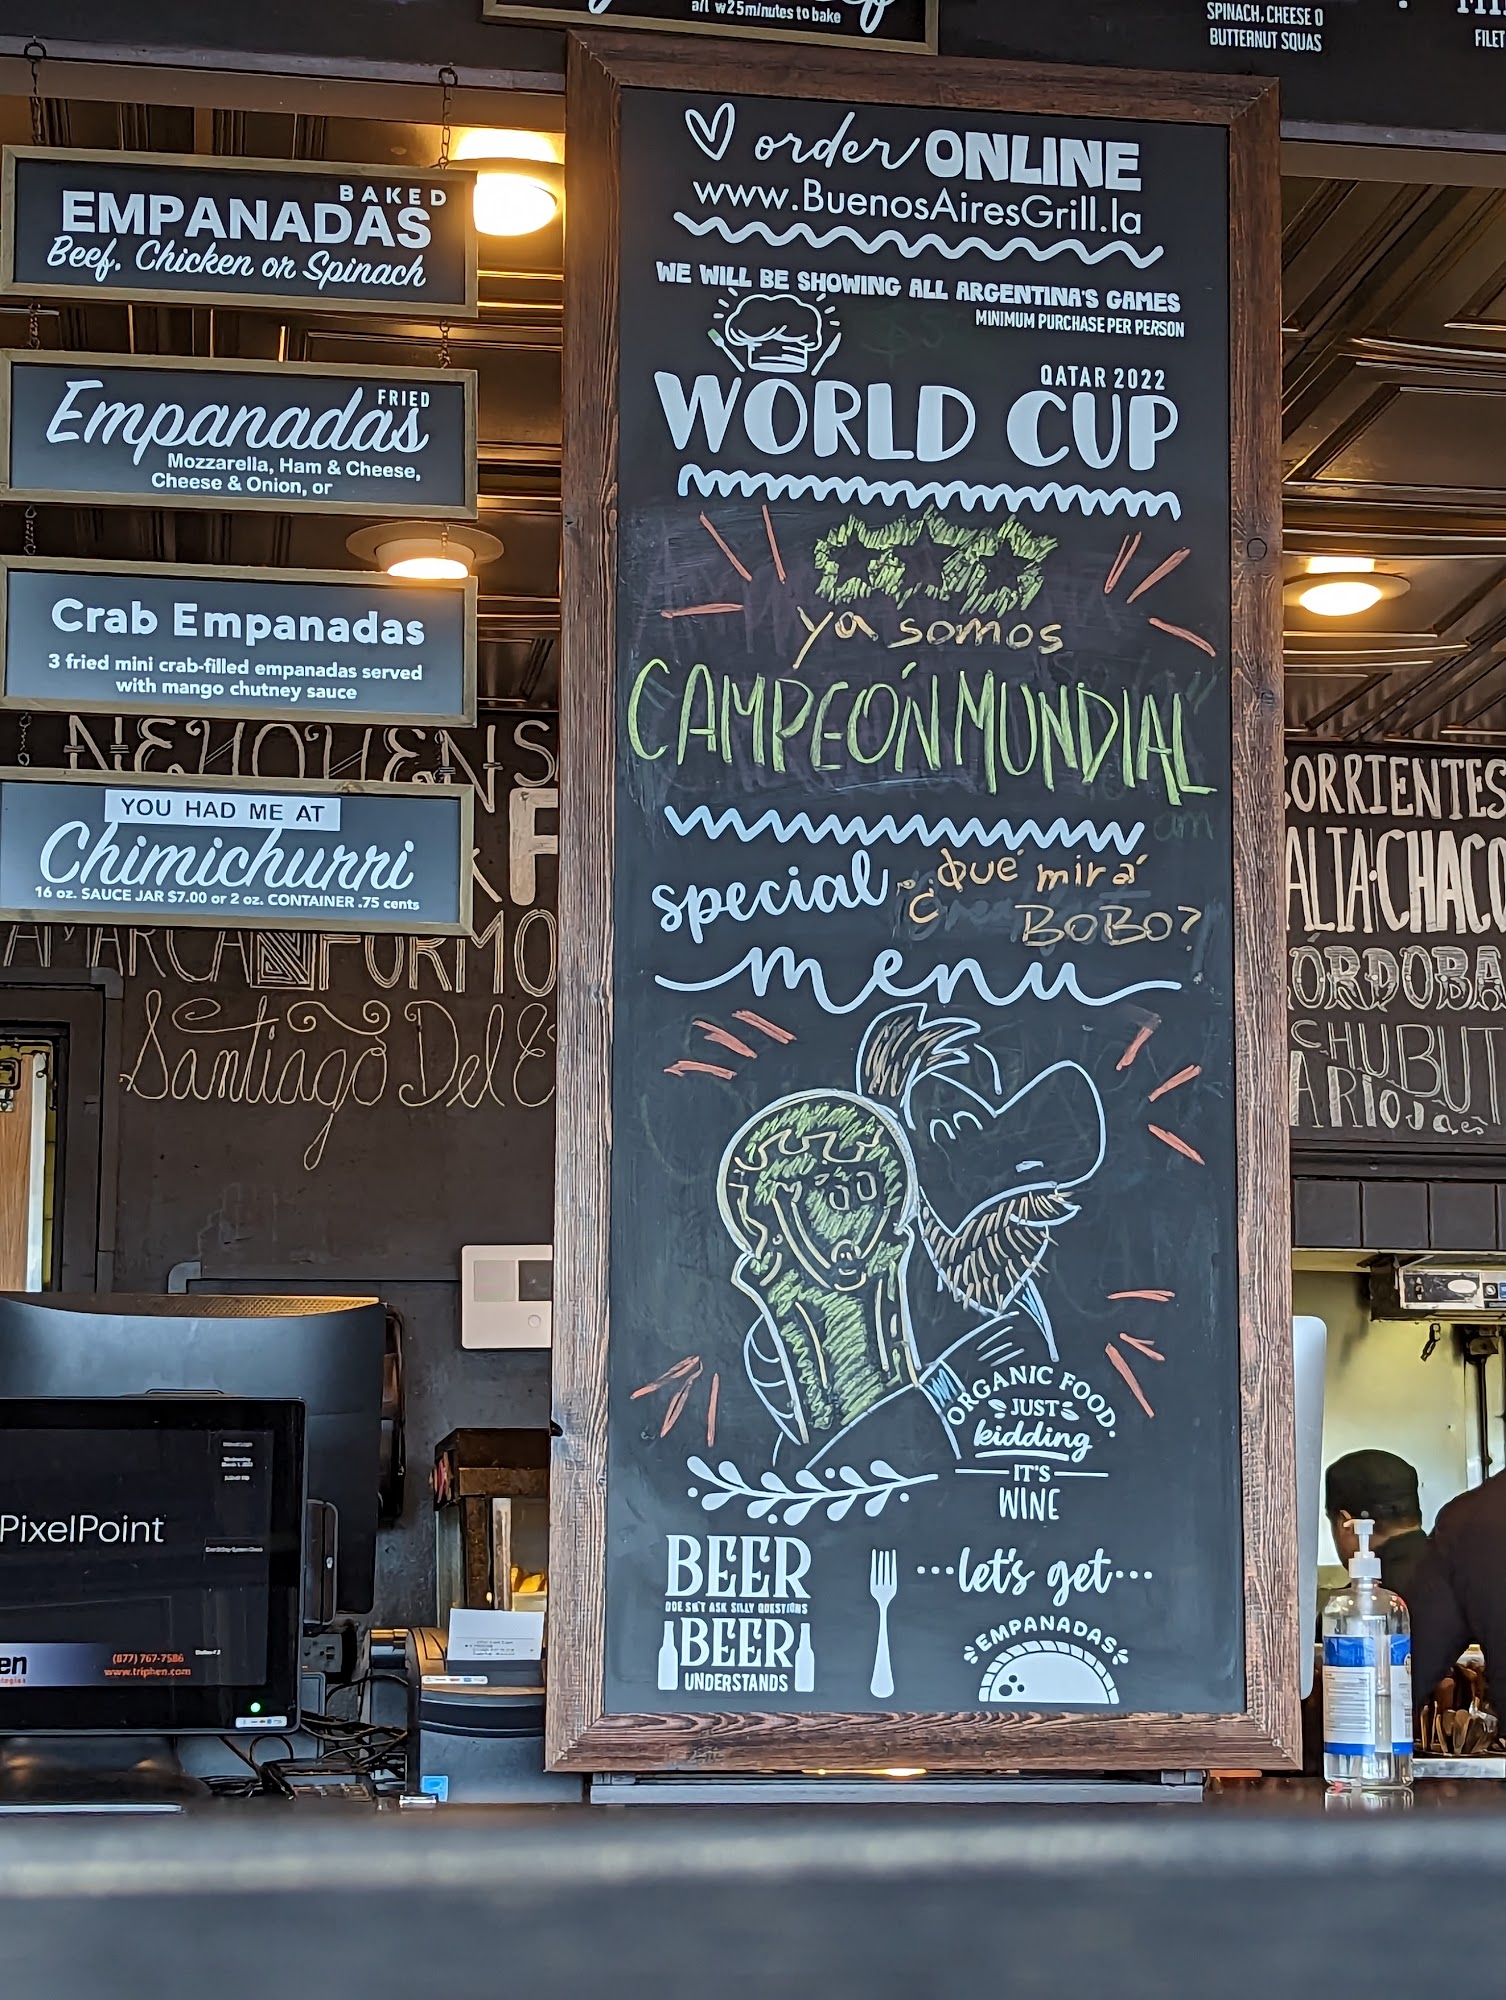 all w25minutes to bake
SPINACH, CHEESE O
BUTTERNUT SQUAS
FILET
BAKED
EMPANADAS
Beef, Chicken or Spinach
FRIED
Empanadas
Mozzarella, Ham & Cheese,
Cheese & Onion, or
Crab Empanadas
3 fried mini crab-filled empanadas served
with mango chutney sauce
YOU HAD ME AT
Chimichurri
16 oz. SAUCE JAR $7.00 or 2 oz. CONTAINER .75 cents
order ONLINE
www.BuenosAiresGrill.la
WE WILL BE SHOWING ALL ARGENTINA'S GAMES
MINIMUM PURCHASE PER PERSON
QATAR 2022
WORLD CUP
ya somos
CAMPEÓN MUNDIAL
special
¿Qué mirá
BOBO?
menu
ORGANIC FOOD.
JUST
kidding
IT'S
WINE
BEER
DOESN'T ASK SILLY QUESTIONS
BEER
UNDERSTANDS
...let's get...
EMPANADAS
AMARCA
FORMO
Santiago Del E
CORRIENTES
ALTA·CHACO
CÓRDOBA
CHUBUT
PixelPoint
en
(877) 767-7586
www.triphen.com